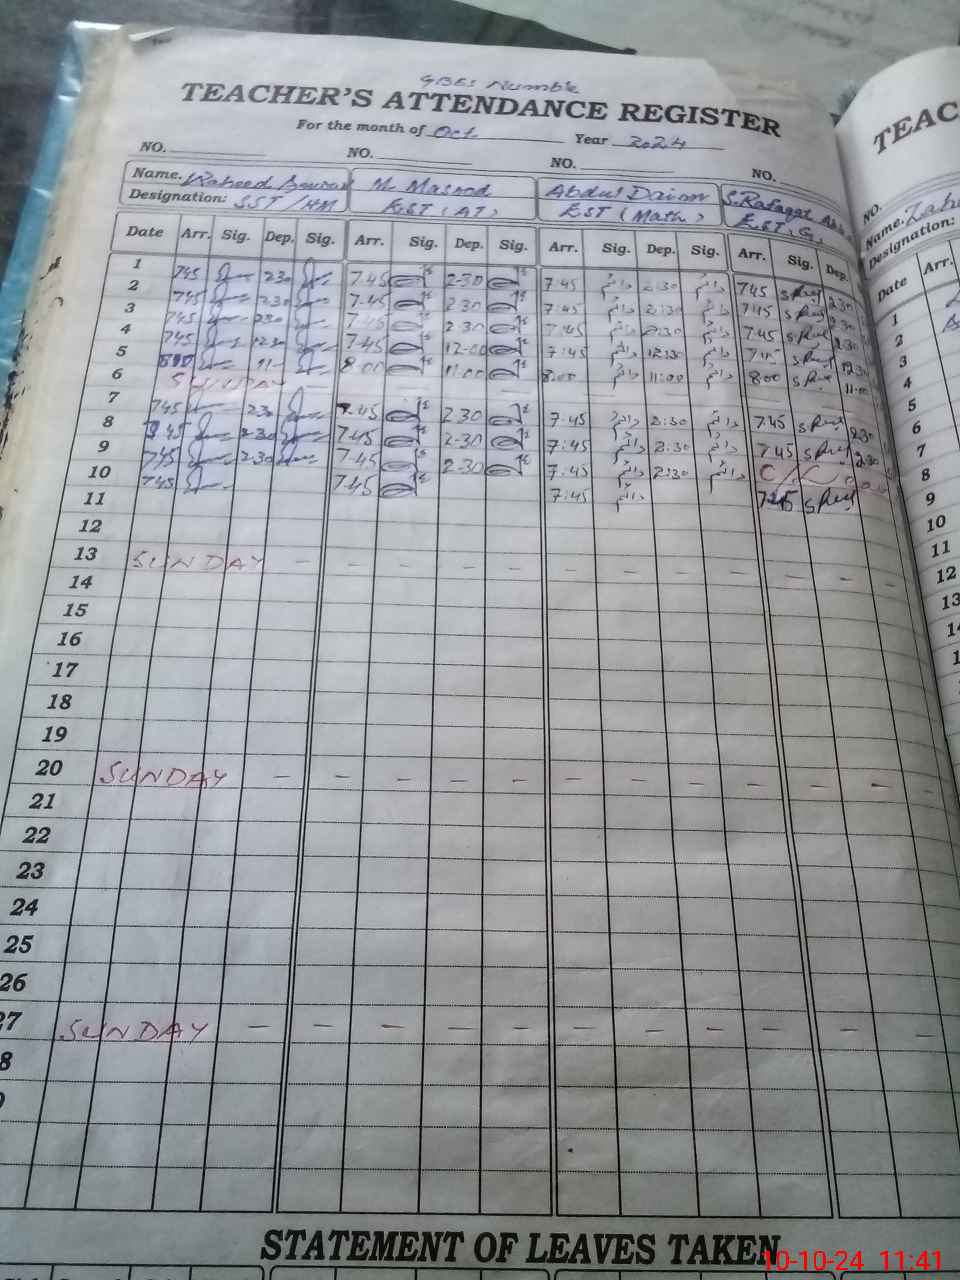 GBES Numble
TEACHER'S ATTENDANCE REGISTER
For the month of Oct Year 2024
NO. NO. NO. NO.
Name. M. Masood Abdul Daiom
Designation: SST/HM EST (AT) EST (Math)
Date Arr. Sig. Dep. Sig. Arr. Sig. Dep. Sig. Arr. Sig. Dep. Sig. Arr. Sig. Dep.
1 745 230 7.45 2-30 7:45 دائم 2:30 دائم 745 230
2 745 230 7.45 2 30 7:45 دائم 2:30 دائم 745 230
3 745 230 7.45 2 30 7:45 دائم 2:30 دائم 745 230
4 745 1230 7.45 12-00 7:45 دائم 12:30 دائم 745 1230
5 800 11- 8.00 11.00 8:00 دائم 11:00 دائم 800 11.00
6 SUNDAY
7 745 230 7.45 2 30 7:45 دائم 2:30 دائم 745 230
8 745 230 7.45 2-30 7:45 دائم 2:30 دائم 745 230
9 745 230 7.45 2-30 7:45 دائم 2:30 دائم C/L
10 745 7.45 7:45 دائم 745
11
12
13 SUNDAY – – – – – – – – – – – –
14
15
16
17
18
19
20 SUNDAY – – – – – – – – – – – –
21
22
23
24
25
26
27 SUNDAY – – – – – – – – – – – –
8
STATEMENT OF LEAVES TAKEN
TEAC
NO.
Name.
Designation:
Date Arr.
1
2
3
4
5
6
7
8
9
10
11
12
13
10-10-24 11:41